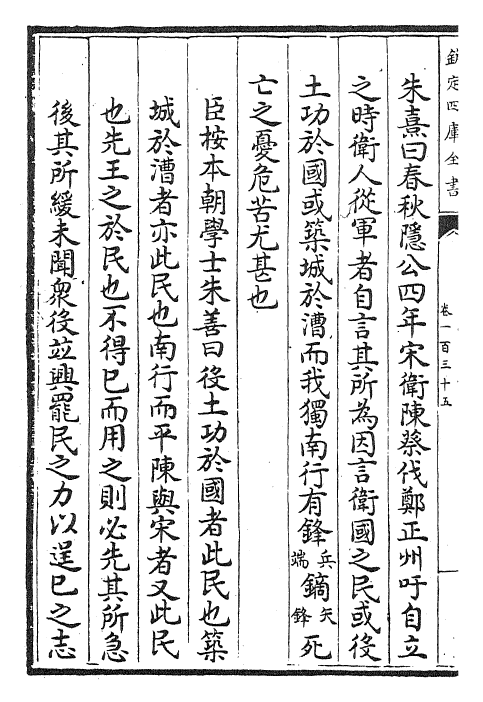 欽定四庫全書
卷一百三十五
朱熹曰春秋隱公四年宋衛陳蔡伐鄭正州吁自立
之時衛人從軍者自言其所為因言衛國之民或役
土功於國或築城於漕而我獨南行有鋒兵端鏑矢鋒死
亡之憂危苦尤甚也
臣按本朝學士朱善曰役土功於國者此民也築
城於漕者亦此民也南行而平陳與宋者又此民
也先王之於民也不得已而用之則必先其所急
後其所緩未聞衆役並興罷民之力以逞已之志